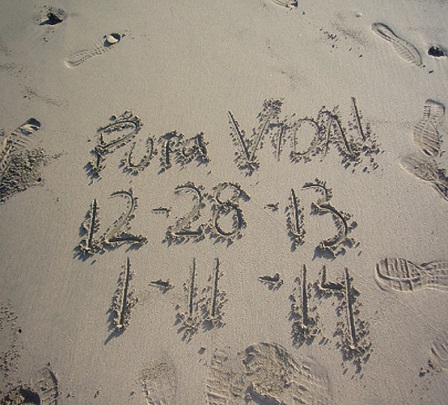 Pura VIDA!
12-28-13
1-11-14